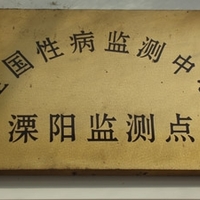 国性病监测中
溧阳监测点